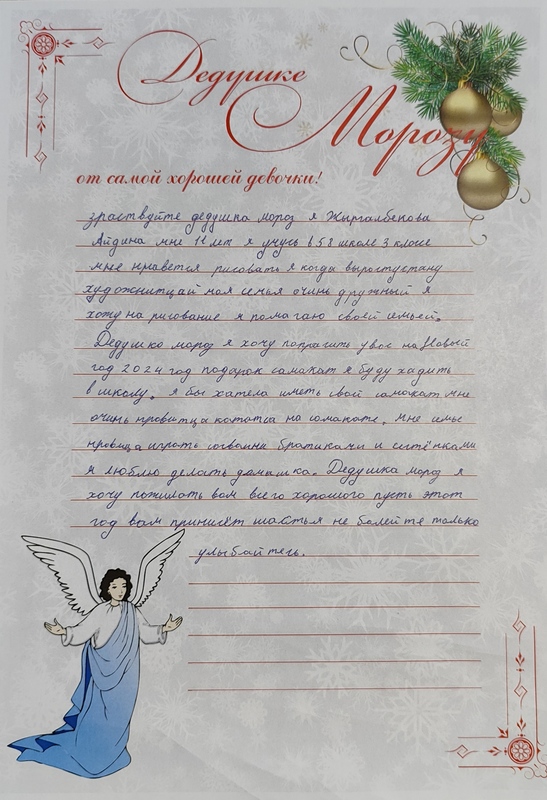 Дедушке
Морозу
от самой хорошей девочки!
здраствуйте дедушка мороз я Жыргалбекова
Айдина мне 11 лет я учусь в 58 школе 3 класе
мне нравется рисовать я когда выростустану
художнитцай моя семья очинь дружный я
хожу на рисование я помагаю своей семьей.
Дедушко мороз я хочу попрасить у вос на Новый
год 2024 год подарок самакат я буду хадить
в школу. я бы хатела иметь свой самокат мне
очинь нровитца кататса на самакате. мне ищьё
нровица играть сосвоими братиками и сестёнками
я люблю делать дамашка. Дедушка мороз я
хочу пожилать вам всего хорошого пусть этот
год вам принисёт шастья не болейте только
улыбайтесь.